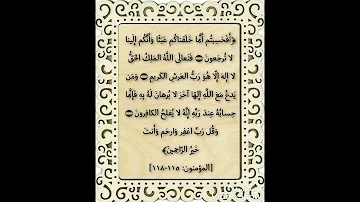 ﴿أَفَحَسِبْتُمْ أَنَّمَا خَلَقْنَاكُمْ عَبَثًا وَأَنَّكُمْ إِلَيْنَا
لَا تُرْجَعُونَ ۝ فَتَعَالَى اللَّهُ الْمَلِكُ الْحَقُّ
لَا إِلَهَ إِلَّا هُوَ رَبُّ الْعَرْشِ الْكَرِيمِ ۝ وَمَن
يَدْعُ مَعَ اللَّهِ إِلَهًا آخَرَ لَا بُرْهَانَ لَهُ بِهِ فَإِنَّمَا
حِسَابُهُ عِندَ رَبِّهِ إِنَّهُ لَا يُفْلِحُ الْكَافِرُونَ ۝
وَقُل رَّبِّ اغْفِرْ وَارْحَمْ وَأَنتَ
خَيْرُ الرَّاحِمِينَ﴾
[المؤمنون: ١١٥-١١٨]